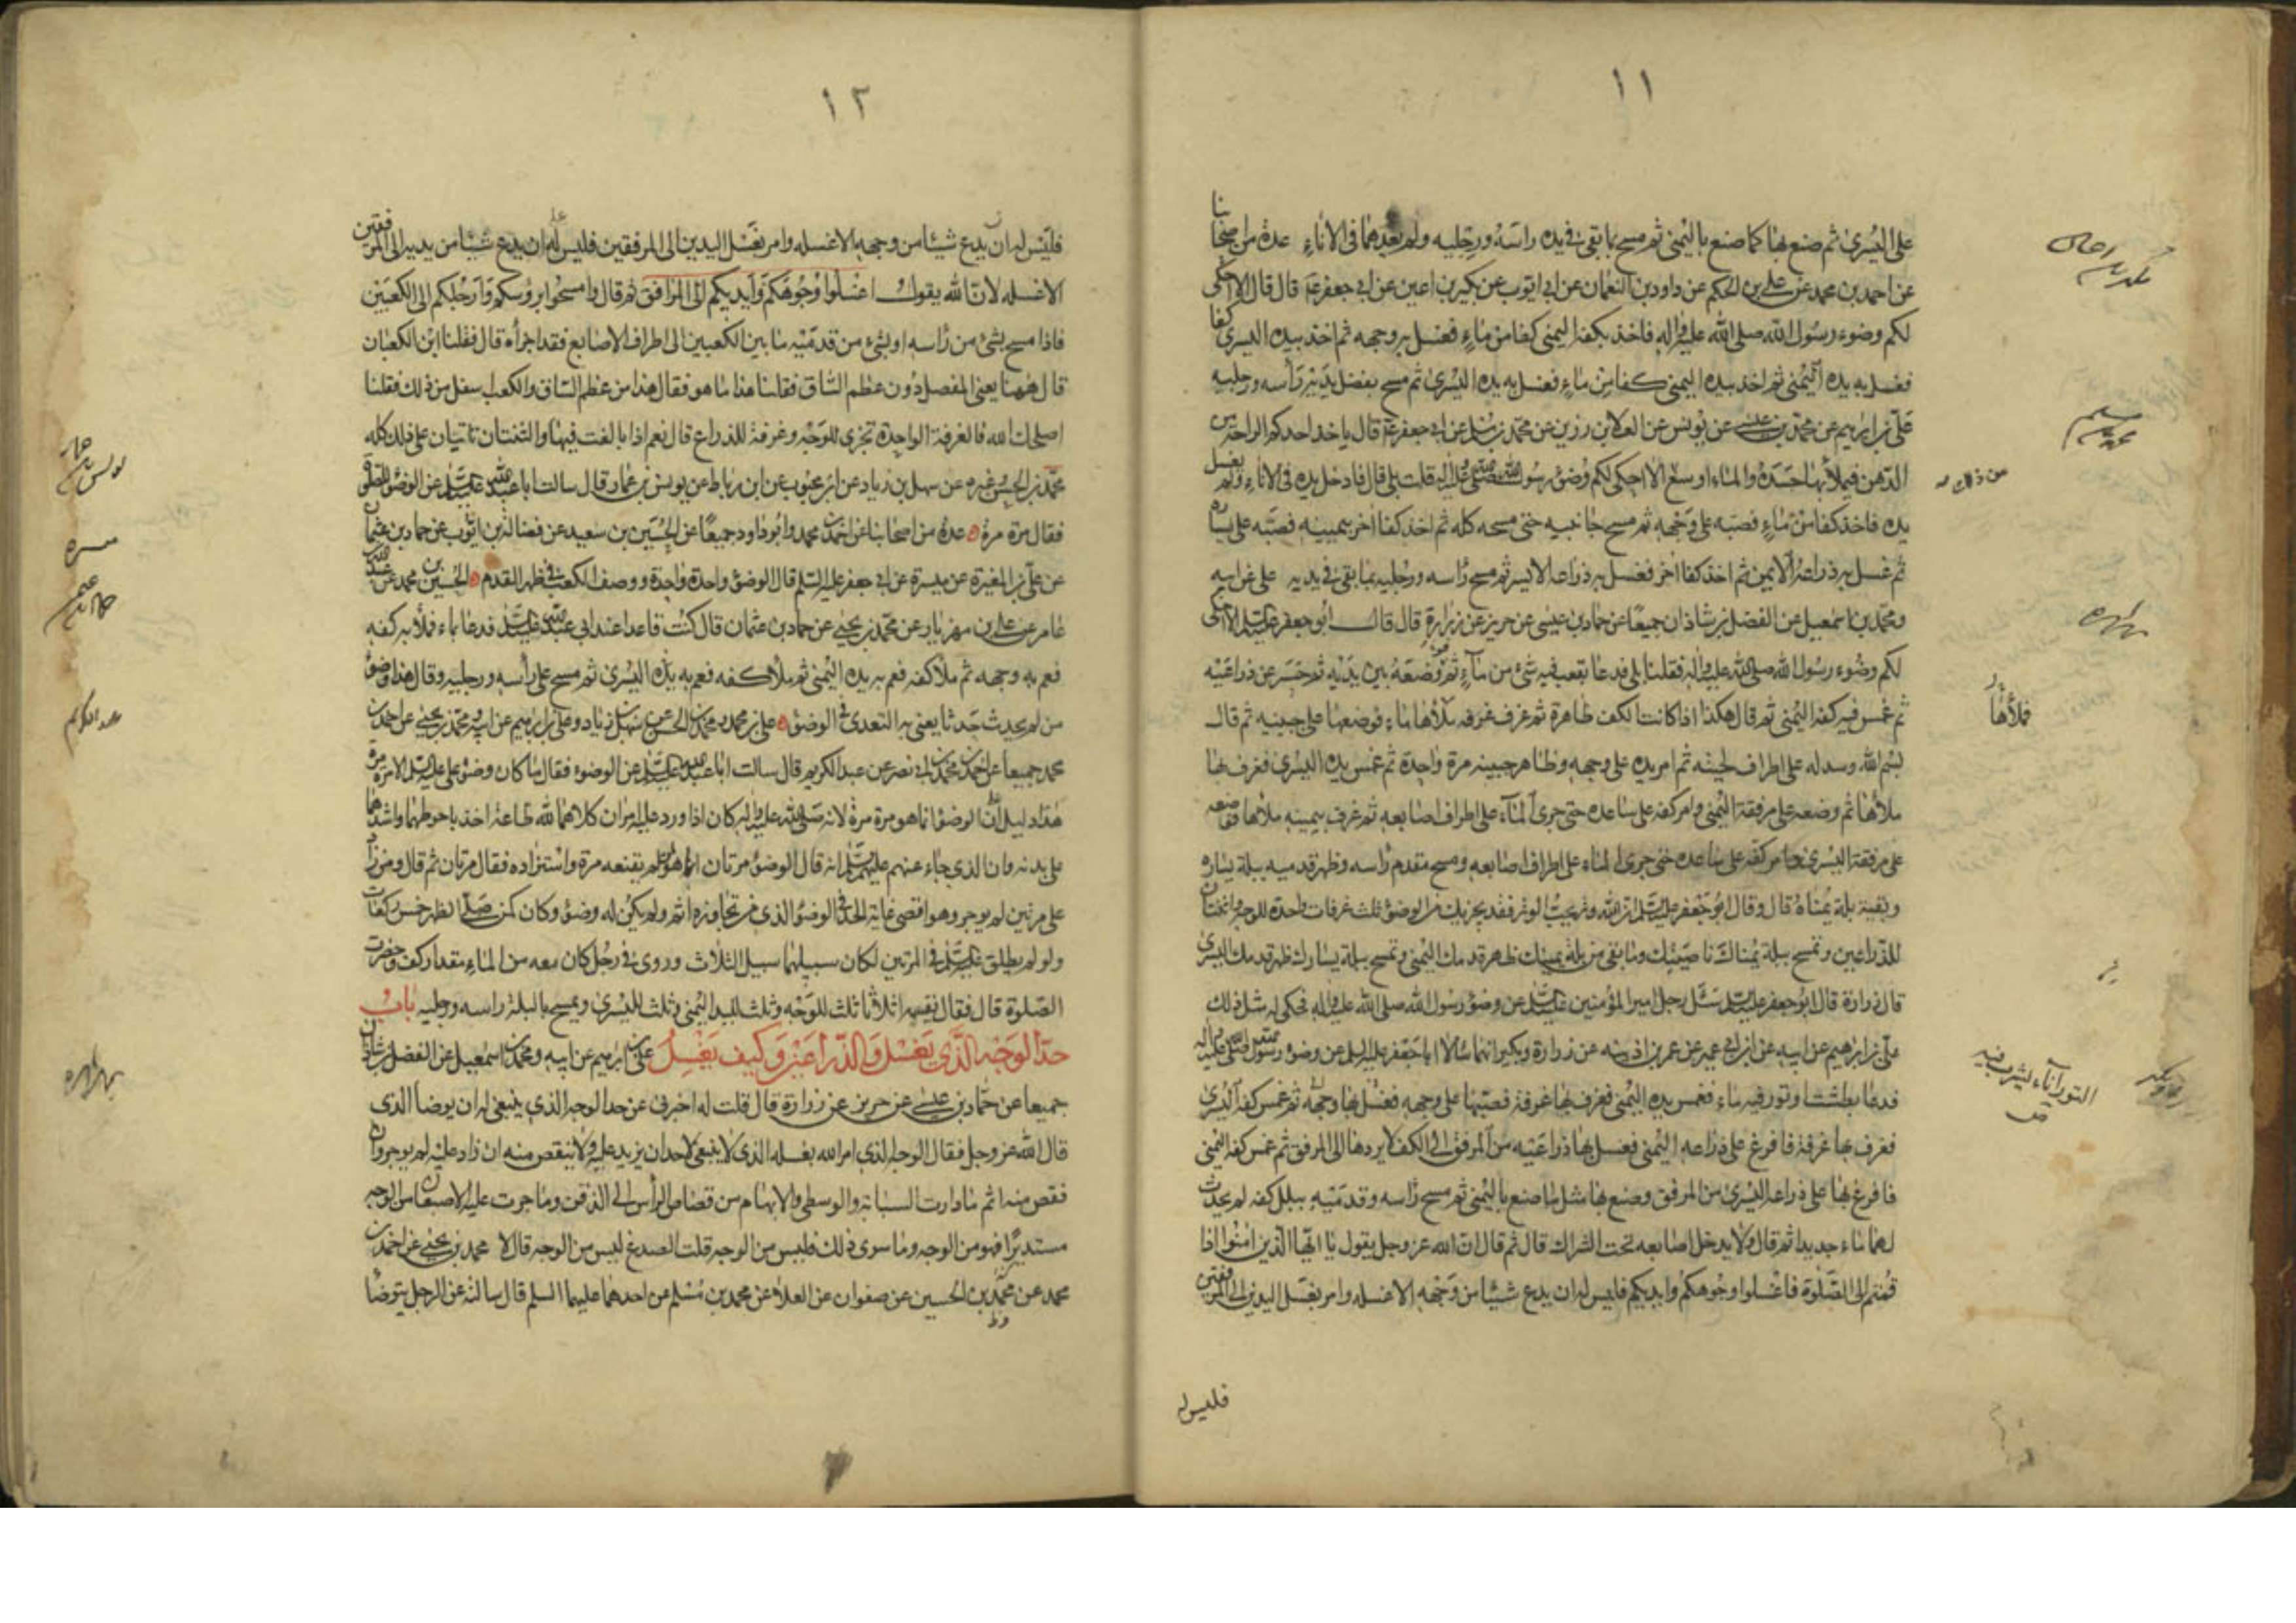 ١١
على اليسرى ثم صنع بها كما صنع باليمنى ثم مسح بما بقى فى يده راسه ورجليه ولم يعدهما فى الاناء عدة من اصحابنا
عن احمد بن محمد عن على بن الحكم عن داود بن النعمان عن ابى ايوب عن بكير بن اعين عن ابى جعفر ع قال قال الا احكى
لكم وضوء رسول الله صلى الله عليه واله فاخذ بكفه اليمنى كفا من ماء فغسل به وجهه ثم اخذ بيده اليسرى كفا
فغسل به يده اليمنى ثم اخذ بيده اليمنى كفا من ماء فغسل به يده اليسرى ثم مسح بفضل يديه رأسه ورجليه
على بن ابرهيم عن محمد بن عيسى عن يونس عن العلا بن رزين عن محمد بن مسلم عن ابى جعفر ع قال ياخذ احدكم الراحة من
الدهن فيملأ بها جسده والماء اوسع الا احكى لكم وضوء رسول الله صلى الله عليه واله قلت بلى قال فادخل يده فى الاناء ولم يغسل
يده فاخذ كفا من ماء فصبه على وجهه ثم مسح جانبيه حتى مسحه كله ثم اخذ كفا اخر بيمينه فصبه على يساره
ثم غسل به ذراعه الايمن ثم اخذ كفا اخر فغسل به ذراعه الايسر ثم مسح رأسه ورجليه بما بقى فى يديه على عن ابيه
ومحمد بن اسمعيل عن الفضل بن شاذان جميعا عن حماد بن عيسى عن حريز عن زرارة قال قال ابو جعفر عليه السلم الا احكى
لكم وضوء رسول الله صلى الله عليه واله فقلنا بلى فدعا بقعب فيه شئ من ماء ثم وضعه بين يديه ثم حسر عن ذراعيه
ثم غمس فيه كفه اليمنى ثم قال هكذا اذا كانت الكف طاهرة ثم غرف غرفه ملأها ماء فوضعها على جبينه ثم قال
بسم الله وسدله على اطراف لحيته ثم امر يده على وجهه وظاهر جبينه مرة واحدة ثم غمس يده اليسرى فغرف بها
ملأها ثم وضعه على مرفقه اليمنى وامر كفه على ساعده حتى جرى الماء على اطراف اصابعه ثم غرف بيمينه ملأها فوضعه
على مرفقه اليسرى وامر كفه على ساعده حتى جرى الماء على اطراف اصابعه ومسح مقدم رأسه وظهر قدميه ببلة يساره
وبقية بلة يمناه قال وقال ابو جعفر عليه السلم ان الله وتر يحب الوتر فقد يجزيك من الوضوء ثلث غرفات واحدة للوجه واثنتان
للذراعين وتمسح ببلة يمناك ناصيتك وما بقى من بلة يمينك ظهر قدمك اليمنى وتمسح ببلة يسارك ظهر قدمك اليسرى
قال زرارة قال ابو جعفر عليه السلم سئل رجل امير المؤمنين عليه السلم عن وضوء رسول الله صلى الله عليه واله فحكى له مثل ذلك
على بن ابرهيم عن ابيه عن ابن ابى عمير عن عمر بن اذينه عن زرارة وبكير انهما سالا ابا جعفر عليه السلم عن وضوء رسول الله صلى الله عليه واله
فدعا بطشت او تور فيه ماء فغمس يده اليمنى فغرف بها غرفة فصبها على وجهه فغسل بها وجهه ثم غمس كفه اليسرى
فغرف بها غرفة فافرغ على ذراعه اليمنى فغسل بها ذراعيه من المرفق الى الكف لا يردها الى المرفق ثم غمس كفه اليمنى
فافرغ بها على ذراعه اليسرى من المرفق وصنع بها مثل ما صنع باليمنى ثم مسح رأسه وقدميه ببلل كفه لم يحدث
لهما ماء جديدا ثم قال ولا يدخل اصابعه تحت الشراك قال ثم قال ان الله عز وجل يقول يا ايها الذين امنوا اذا
قمتم الى الصلوة فاغسلوا وجوهكم وايديكم فليس له ان يدع شيئا من وجهه الا غسله وامر بغسل اليدين الى المرفقين
فليس له
من ذلك
فملأها
التور اناء يشرب فيه
ص
١٢
فليس له ان يدع شيئا من وجهه الا غسله وامر بغسل اليدين الى المرفقين فليس له ان يدع شيئا من يديه الى المرفقين
الا غسله لان الله يقول اغسلوا وجوهكم وايديكم الى المرافق ثم قال وامسحوا برؤسكم وارجلكم الى الكعبين
فاذا مسح بشئ من رأسه او بشئ من قدميه ما بين الكعبين الى اطراف الاصابع فقد اجزأه قال فقلنا اين الكعبان
قال ههنا يعنى المفصل دون عظم الساق فقلنا هذا ما هو فقال هذا من عظم الساق والكعب اسفل من ذلك فقلنا
اصلحك الله فالغرفة الواحدة تجزى للوجه وغرفة للذراع قال نعم اذا بالغت فيها والثنتان تاتيان على ذلك كله
محمد بن الحسن وغيره عن سهل بن زياد عن ابن محبوب عن ابن رباط عن يونس بن عمار قال سالت ابا عبد الله عليه السلم عن الوضوء للصلوة
فقال مرة مرة عدة من اصحابنا عن احمد بن محمد وابو داود جميعا عن الحسين بن سعيد عن فضالة بن ايوب عن حماد بن عثمان
عن على بن المغيرة عن ميسرة عن ابى جعفر عليه السلم قال الوضوء واحدة واحدة ووصف الكعب فى ظهر القدم الحسين بن محمد عن عبد الله بن
عامر عن على بن مهزيار عن محمد بن يحيى عن حماد بن عثمان قال كنت قاعدا عند ابى عبد الله عليه السلم فدعا بماء فملأ به كفه
فعم به وجهه ثم ملأ كفه فعم به يده اليمنى ثم ملأ كفه فعم به يده اليسرى ثم مسح على رأسه ورجليه وقال هذا وضوء
من لم يحدث حدثا يعنى به التعدى فى الوضوء على بن محمد ومحمد بن الحسن عن سهل بن زياد وعلى بن ابرهيم عن ابيه ومحمد بن يحيى عن احمد بن
محمد جميعا عن احمد بن محمد بن ابى نصر عن عبد الكريم قال سالت ابا عبد الله عليه السلم عن الوضوء فقال ما كان وضوء على عليه السلم الا مرة مرة
هذا دليل على ان الوضوء انما هو مرة مرة لانه صلى الله عليه واله كان اذا ورد عليه امران كلاهما لله طاعة اخذ باحوطهما واشدهما
على بدنه وان الذى جاء عنهم عليهم السلم انه قال الوضوء مرتان انما هو لم يقنعه مرة واستزاده فقال مرتان ثم قال ومن زاد
على مرتين لم يوجر وهو اقصى غاية الحد فى الوضوء الذى من تجاوزه اثم ولم يكن له وضوء وكان كمن صلى الظهر خمس ركعات
ولو لم يطلق عليه السلم فى المرتين لكان سبيلهما سبيل الثلاث وروى فى رجل كان معه من الماء مقدار كف وحضرت
الصلوة قال فقال يقسمه اثلاثا ثلث للوجه وثلث لليد اليمنى وثلث لليسرى ويمسح بالبلة راسه ورجليه باب
حد الوجه الذى يغسل والذراعين وكيف يغسل على بن ابرهيم عن ابيه ومحمد بن اسمعيل عن الفضل بن شاذان
جميعا عن حماد بن عيسى عن حريز عن زرارة قال قلت له اخبرنى عن حد الوجه الذى ينبغى له ان يوضأ الذى
قال الله عز وجل فقال الوجه الذى امر الله بغسله الذى لا ينبغى لاحد ان يزيد عليه ولا ينقص منه ان زاد عليه لم يوجر وان
نقص منه اثم ما دارت السبابة والوسطى والابهام من قصاص الرأس الى الذقن وما جرت عليه الاصبعان من الوجه
مستديرا فهو من الوجه وما سوى ذلك فليس من الوجه قلت الصدغ ليس من الوجه قال لا محمد بن يحيى عن احمد بن
محمد عن محمد بن الحسين عن صفوان عن العلاء عن محمد بن مسلم عن احدهما عليهما السلم قال سالته عن الرجل يتوضأ
عبد الكريم